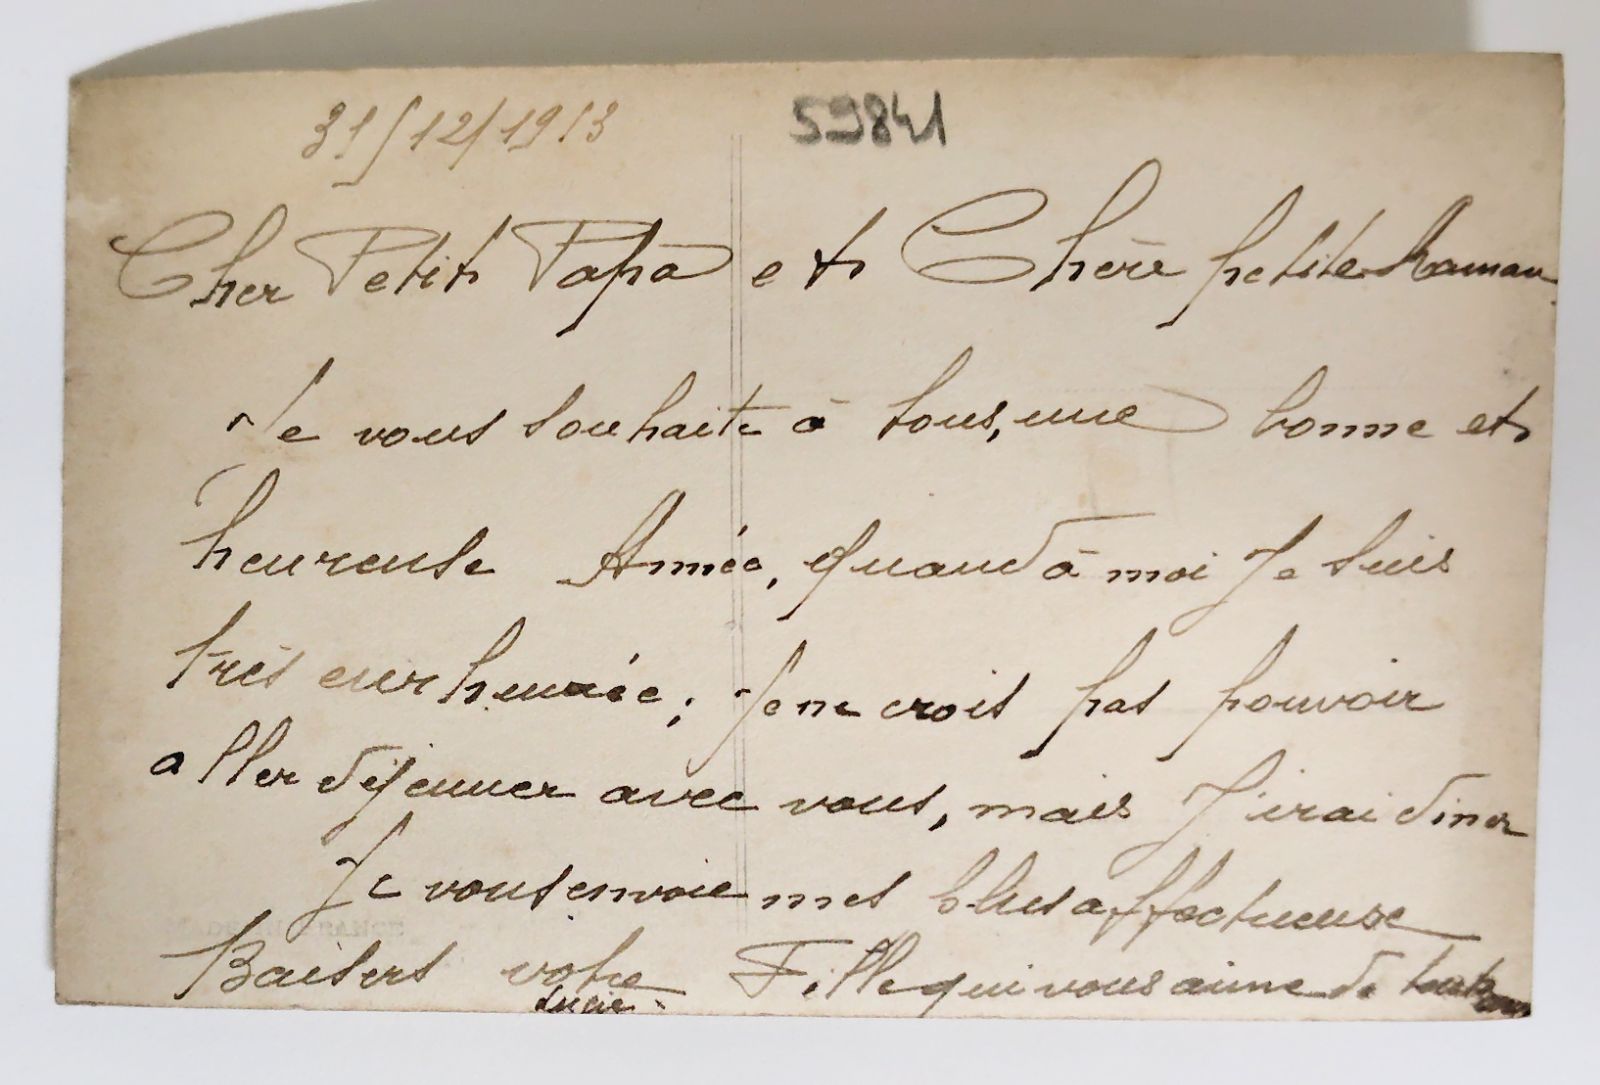 31/12/1913
59841
Cher Petit Papa et Chère petite Maman
Je vous souhaite à tous, une bonne et
heureuse Année, quand à moi Je suis
très enrhumée; Je ne crois pas pouvoir
aller déjeuner avec vous, mais J'irai diner
Je vous envoie mes plus affectueuse
MADE IN FRANCE
Baisers votre Fille qui vous aime de tout
Lucie